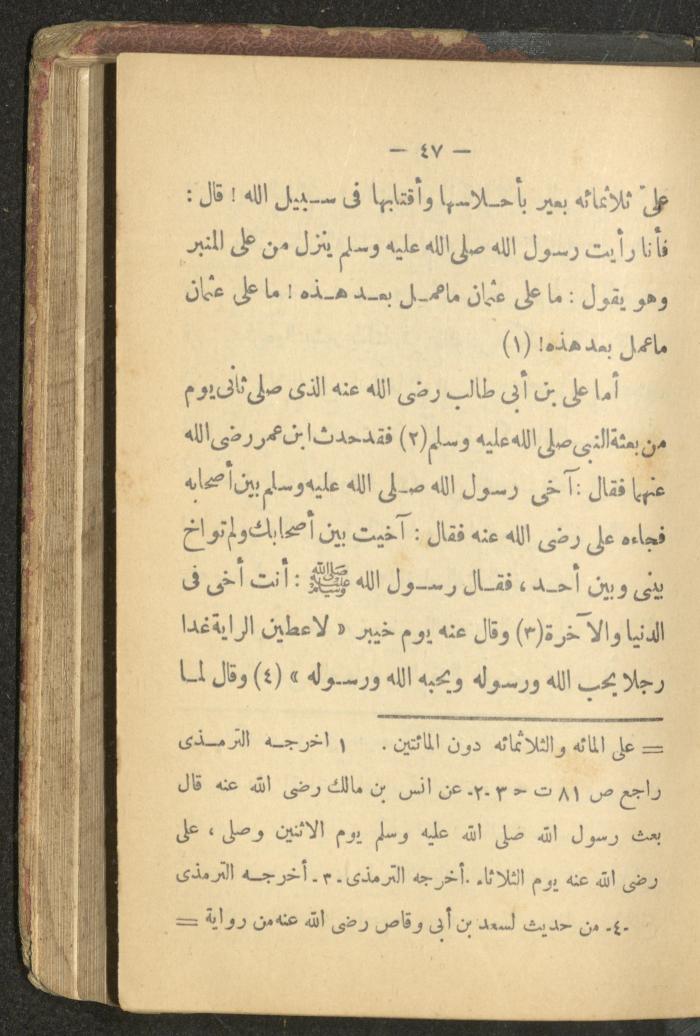 — ٤٧ —
علىّ ثلاثمائه بعير بأحـلاسها وأقتابها فى سـبيل الله ! قال :
فأنا رأيت رسول الله صلى الله عليه وسلم ينزل من على المنبر
وهو يقول : ما على عثمان ماعمـل بعـد هـذه ! ما على عثمان
ماعمل بعد هذه! (١)
أما على بن أبى طالب رضى الله عنه الذى صلى ثانى يوم
من بعثة النبى صلى الله عليه وسلم (٢) فقد حدث ابن عمر رضى الله
عنهما فقال : آخى رسول الله صـلى الله عليه وسلم بين أصحابه
فجاءه على رضى الله عنه فقال : آخيت بين أصحابك ولم تواخ
بينى وبين أحـد ، فقـال رسـول الله ﷺ : أنت أخى فى
الدنيا والآخرة (٣) وقال عنه يوم خيبر « لاعطين الراية غدا
رجلا يحب الله ورسوله ويحبه الله ورسـوله » (٤) وقال لمـا
= على المائه والثلاثمائه دون المائتين . ١ اخرجـه الترمـذى
راجع ص ٨١ ت ح ٣ -٢- عن انس بن مالك رضى الله عنه قال
بعث رسول الله صلى الله عليه وسلم يوم الاثنين وصلى ، على
رضى الله عنه يوم الثلاثاء . أخرجه الترمذى -٣- أخرجـه الترمذى
-٤- من حديث لسعد بن أبى وقاص رضى الله عنه من رواية =